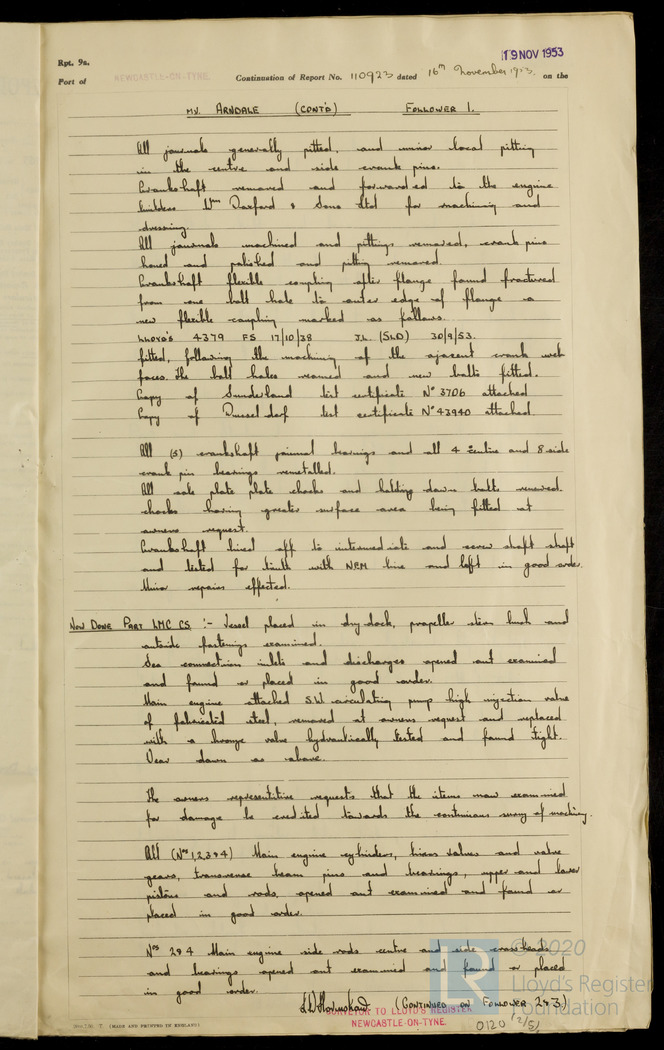 19 NOV 1953
Rpt. 9a.
Port of NEWCASTLE-ON-TYNE. Continuation of Report No. 110923 dated 16th November 1953. on the
MV. ARNDALE (CONT'D) FOLLOWER 1.
All journals generally pitted, and minor local pitting
in the centre and side crank pins.
Crankshaft removed and forwarded to the engine
builders Wm Doxford & Sons Ltd for machining and
dressing.
All journals machined and pittings removed, crank pins
honed and polished and pitting removed.
Crankshaft flexible coupling after flange found fractured
from one bolt hole to outer edge of flange a
new flexible coupling marked as follows.
LLOYD'S 4379 FS 17/10/38 J.L. (SLD) 30/9/53.
fitted, following the machining of the ajacent crank web
faces. The bolt holes reamed and new bolts fitted.
Copy of Sunderland test certificate No 3706 attached
Copy of Dusseldorf test certificate No 43940 attached
All (5) crankshaft journal bearings and all 4 centre and 8 side
crank pin bearings remetalled.
All sole plate plate chocks and holding down bolts renewed.
chocks having greater surface area being fitted at
owners request.
Crankshaft lined off to intermediate and screw shaft shaft
and tested for truth with NEM line and left in good order.
Minor repairs effected.
NOW DONE PART LMC CS :- Vessel placed in dry dock, propeller stern bush and
outside fastenings examined.
Sea connections inlets and discharges opened out examined
and found or placed in good order.
Main engine attached S.W. circulating pump high injection valve
of fabricated steel, removed at owners request and replaced
with a bronze valve hydraulically tested and found tight.
Wear down as above.
The owners representitive requests that the items now examined
for damage be credited towards the continuous survey of machinery.
All (Nos 1,2,3&4) Main engine cylinders, liners valves and valve
gears, transverse beam pins and bearings, upper and lower
pistons and rods, opened out examined and found or
placed in good order.
Nos 2&4 Main engine side rods centre and side crossheads
and bearings opened out examined and found or placed
in good order.
(CONTINUED ON FOLLOWER 2&3)
SURVEYOR TO LLOYD'S REGISTER
NEWCASTLE-ON-TYNE.
0120 2/5
(MADE AND PRINTED IN ENGLAND)
© 2020
Lloyd's Register
Foundation